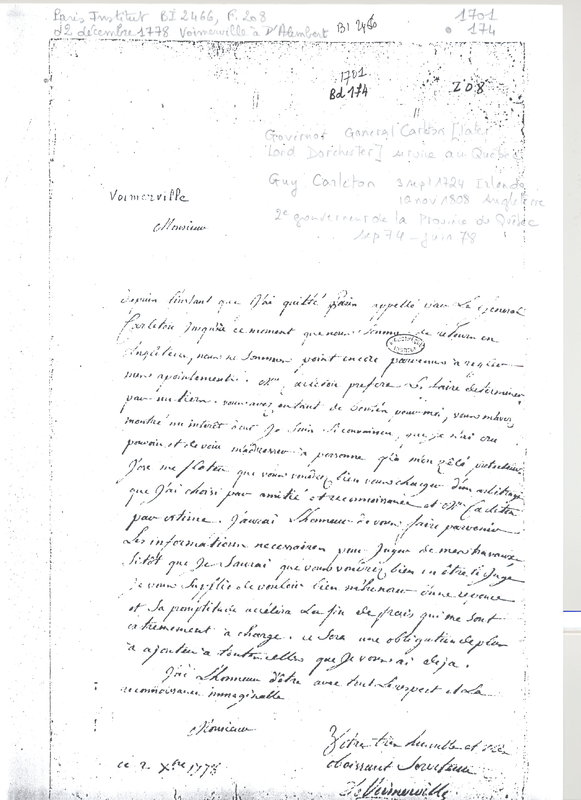 Paris Institut BI 2466, F. 208
d2 décembre 1778 Voimerville à D'Alembert
BI 2466
1701
174
1701
Bd 174
208
Governor General Carleton [later
Lord Dorchester] au Québec
Guy Carleton 3 sept 1724 Irlande
10 nov 1808 Angleterre
2e gouverneur de la Province de Québec
sep 74 - juin 78
Voimerville
Monsieur
Depuis l'instant que J'ai quitté Paris appellé par Le General
Carleton Jusqu'à ce moment que nous sommes de retour en
Angleterre, nous ne sommes point encore parvenus à regler
mes apointements. Mr prefere Le faire determiner
par un tiers. vous avez eu tant de pour moi, vous m'avez
montré un interêt dont Je suis si convaincu, que je n'ai cru
pouvoir et devoir m'adresser à personne
J'ose me flater que vous voudrez bien vous charger d'un arbitrage
que J'ai choisi par amitié et reconnoissance et Mr Carleton
par estime. J'aurai L'honneur de vous faire parvenir
Les informations necessaires pour Juger de mes travaux
sitôt que Je Saurai que vous voudrez bien en être Le Juge
Je vous Suplie de vouloir bien m'honorer d'une reponce
et Sa promptitude accelera La fin de frais qui me sont
extremement à charge. ce Sera une obligation de plus
à ajouter à toutes celles que Je vous ai deja.
J'ai L'honneur d'être avec tout Le respect et La
reconnoissance immaginable
Monsieur
Votre très humble et
obeissant Serviteur
De Vuimerville
ce 2 Xbre 1778